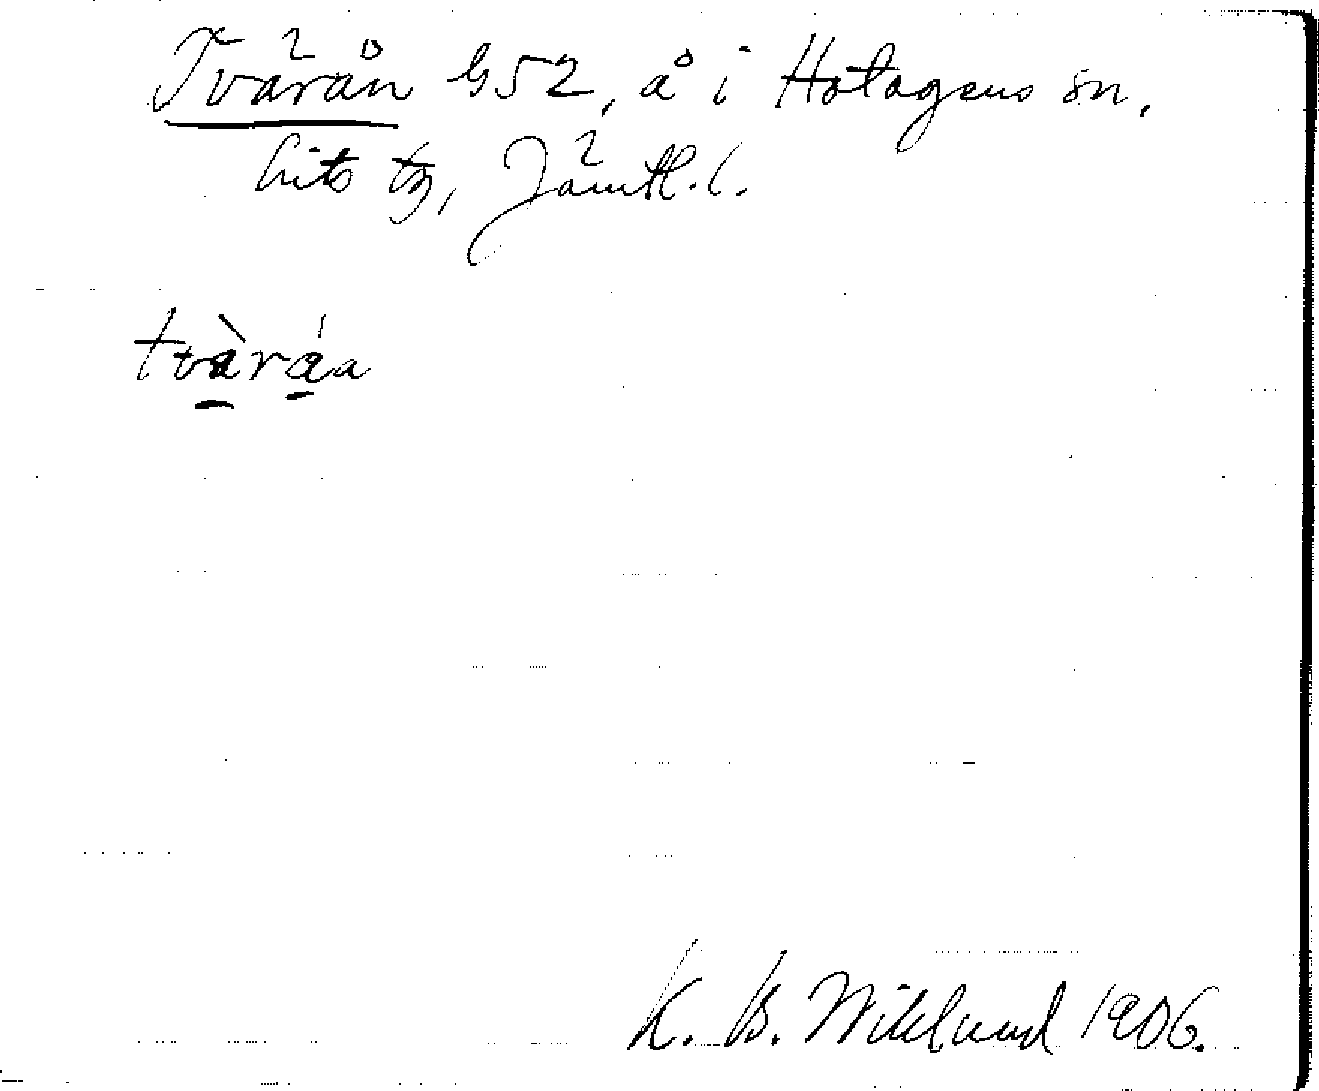 Tvärån G52, å i Hotagens sn,
Lits tg, Jämtl. l.
tvàráa
K. B. Wiklund 1906.